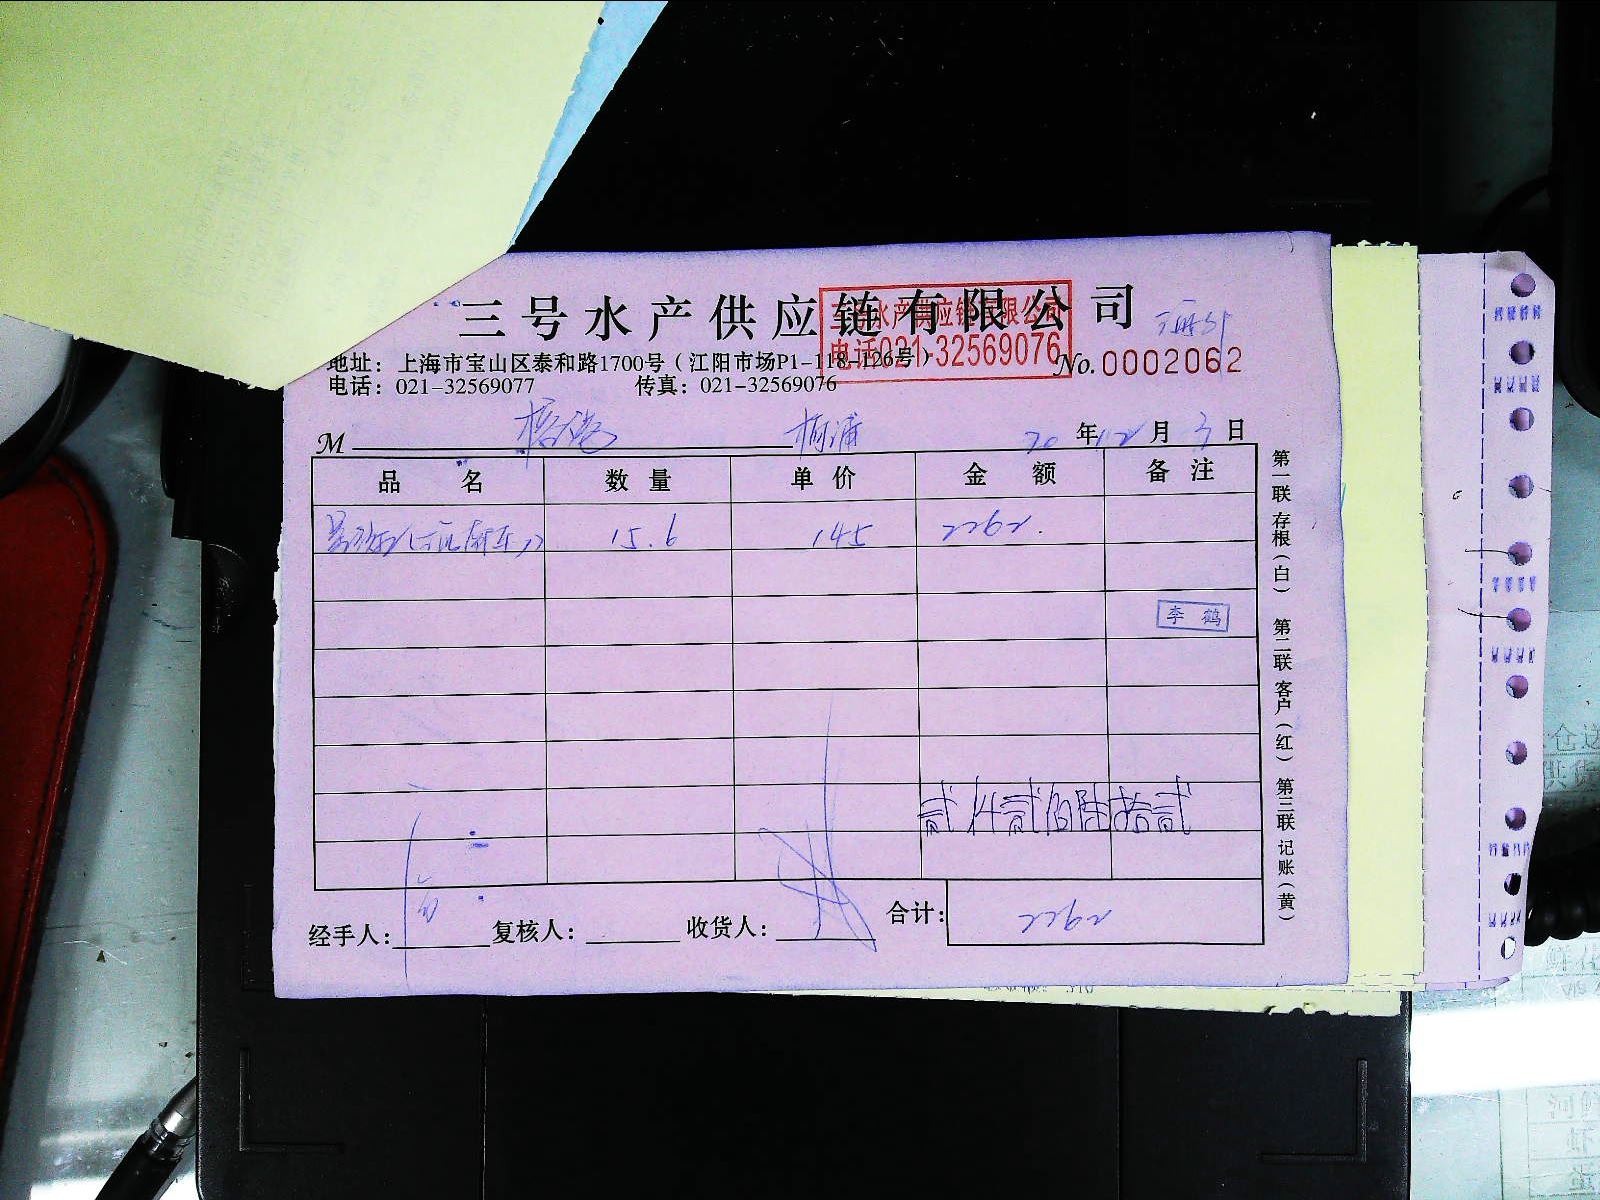 三号水产供应链有限公司
三号水产供应链有限公司
电话021-32569076
地址：上海市宝山区泰和路1700号（江阳市场P1-118-126号）
No.0002062
电话：021-32569077 传真：021-32569076
M 杨浦 20 年 12 月 3 日
品名 数量 单价 金额 备注
15.6 145 2262.
李鹤
贰仟贰佰陆拾贰
经手人： 复核人： 收货人： 合计： 2262
第一联 存根（白） 第二联 客户（红） 第三联 记账（黄）